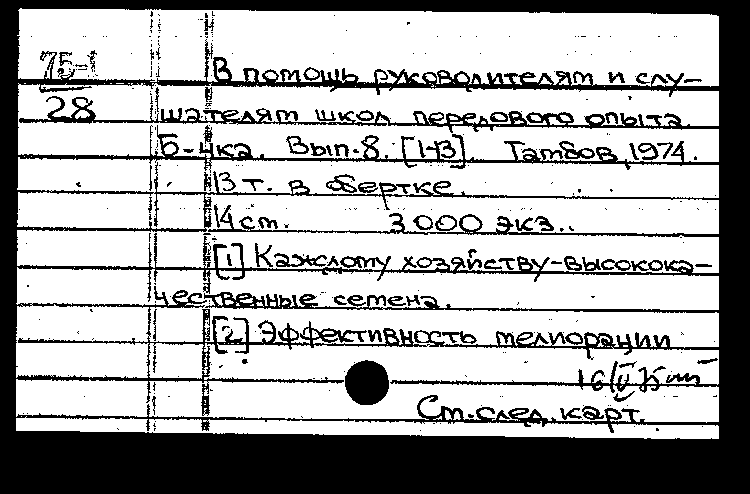 75-1
28
В помощь руководителям и слу-
шателям школ передового опыта.
Б-чка. Вып.8. [1-13]. Тамбов, 1974.
13 т. в обертке.
14 см. 3000 экз..
[1] Каждому хозяйству-высокока-
чественные семена.
[2] Эффективность мелиорации
16/V 75
См.след.карт.